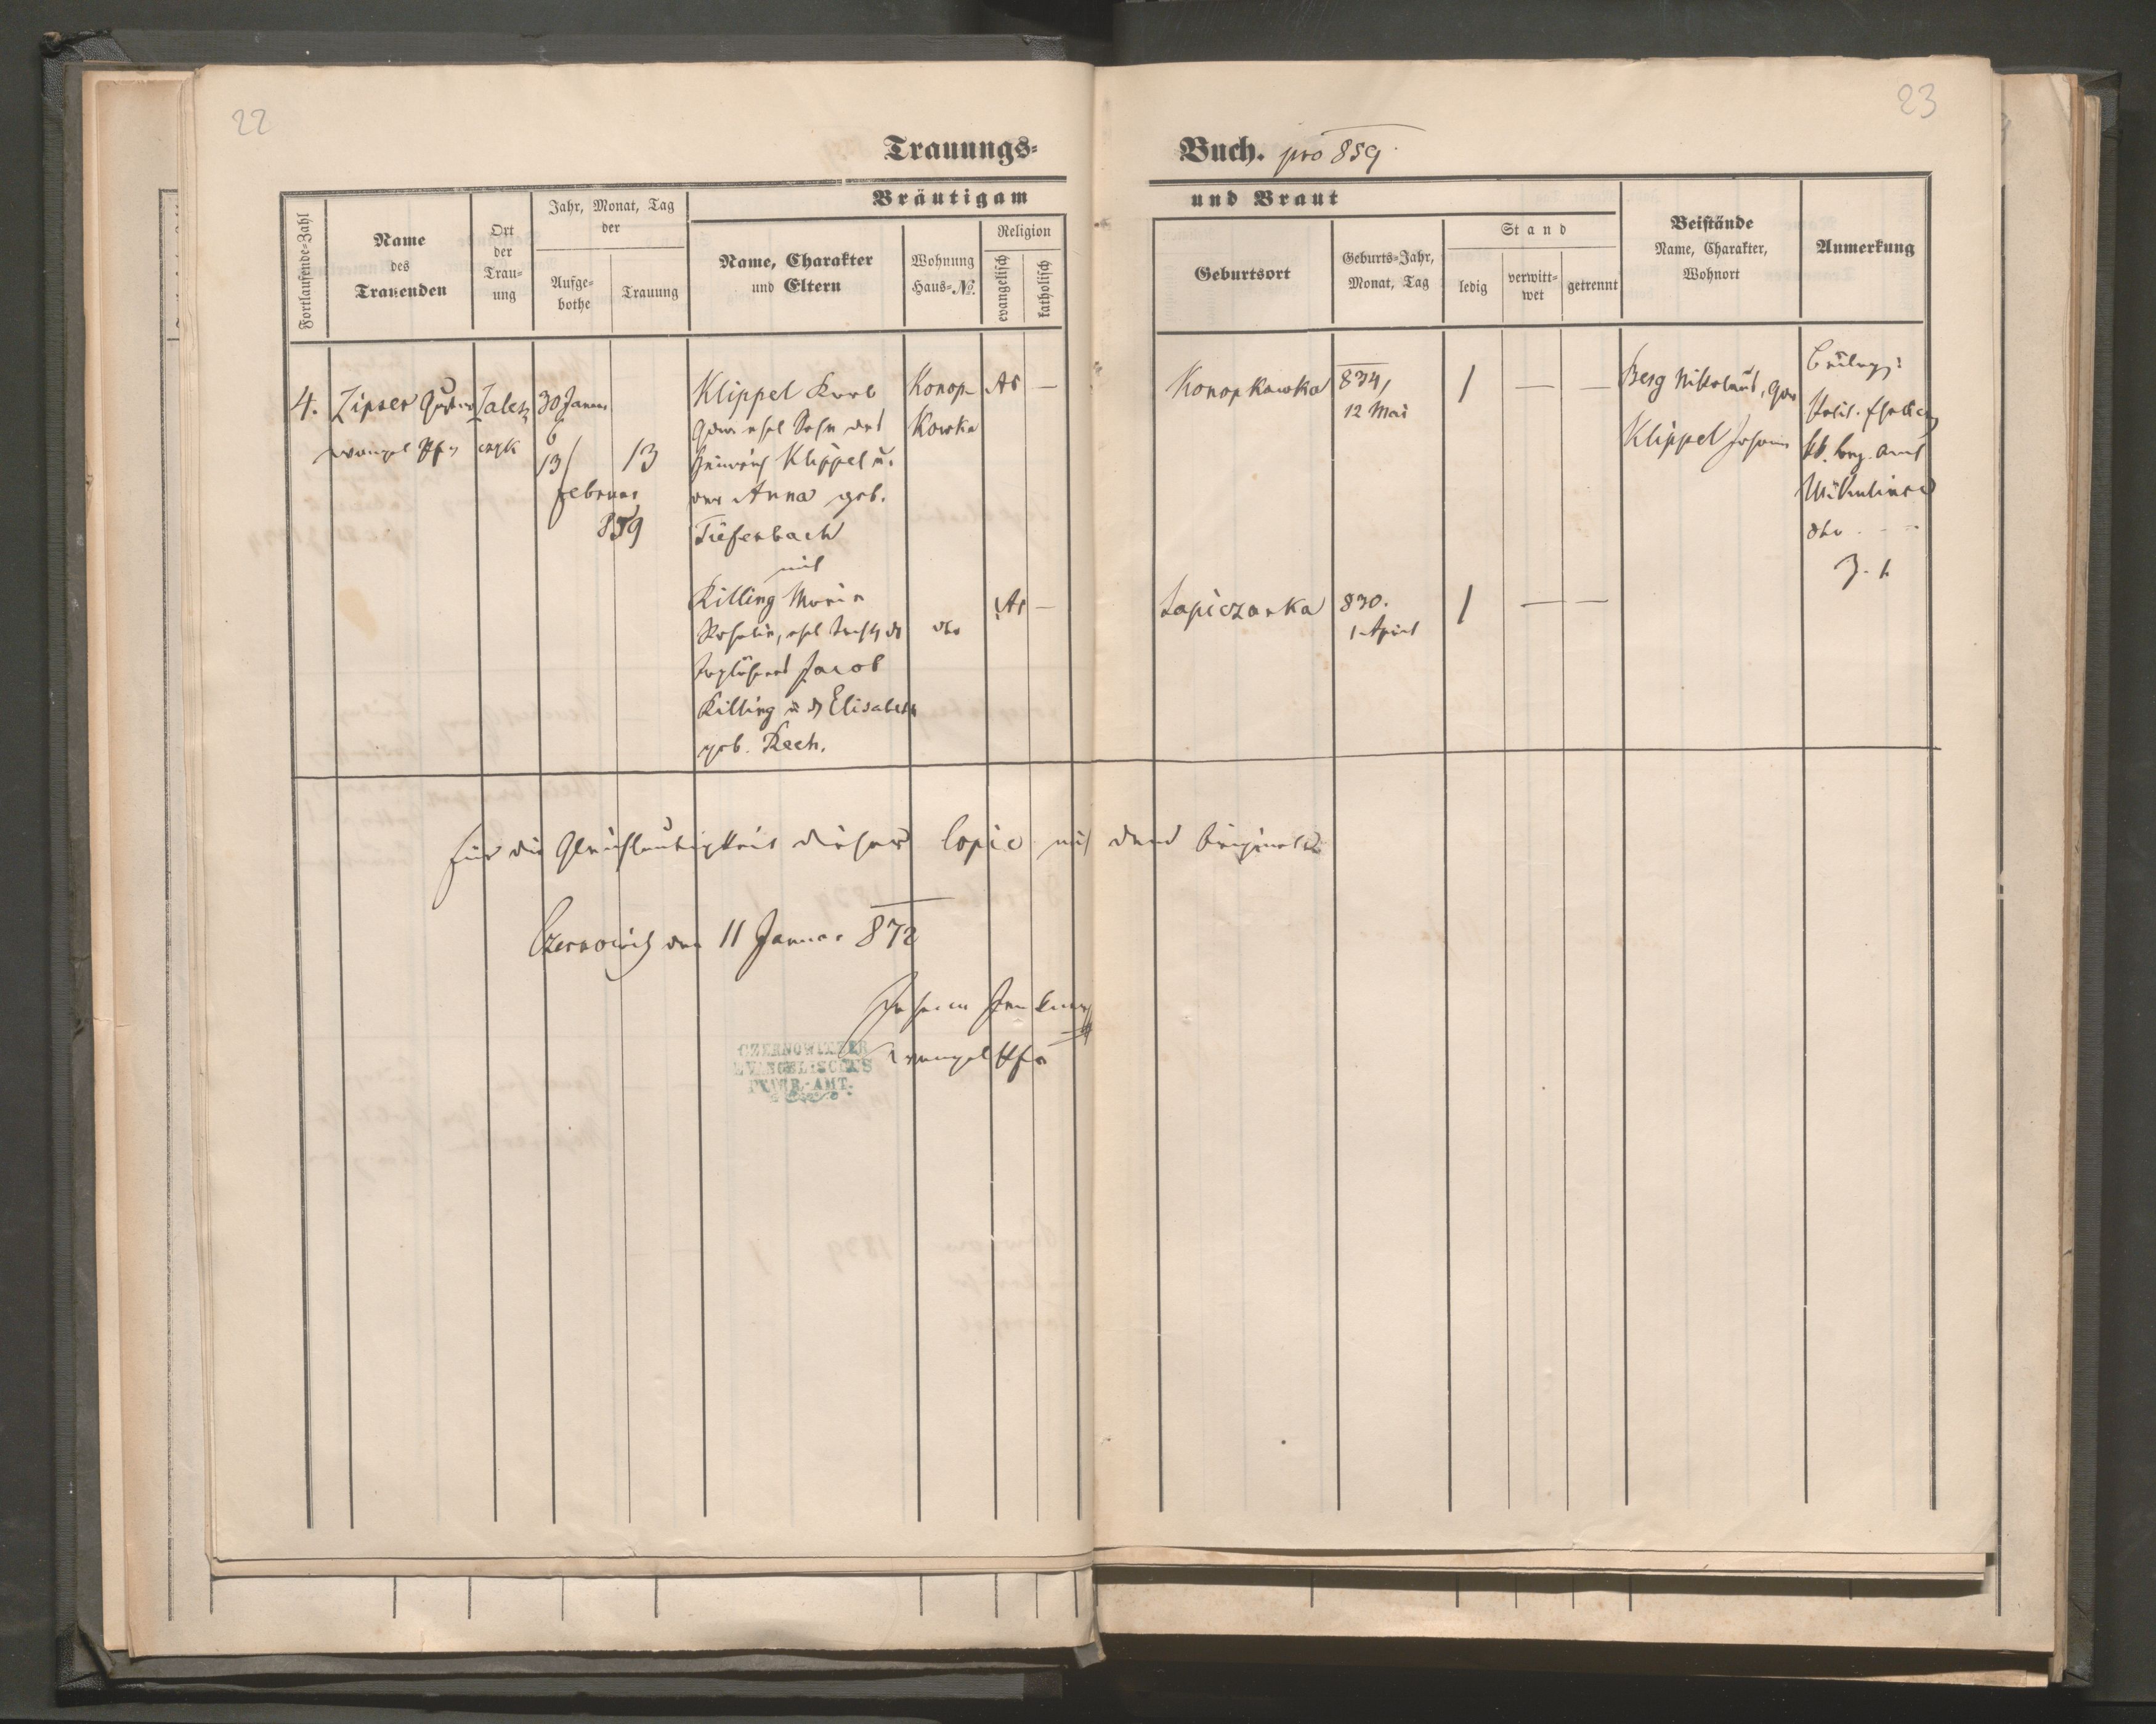 22
23
Trauungs-
Buch. pro 859
Bräutigam
und Braut
Fortlaufende-Zahl
Name
des
Trauenden
Ort
der
Trau-
ung
Jahr, Monat, Tag
der
Aufge-
bothe
Trauung
Name, Charakter
und Eltern
Wohnung
Haus-No.
Religion
evangelisch
katholisch
Geburtsort
Geburts-Jahr,
Monat, Tag
Stand
ledig
verwitt-
wet
getrennt
Beistände
Name, Charakter,
Wohnort
Anmerkung
4.
Zipser Gustav
evangel Pf
Zalesz
czyk
30 Januar
6
13/
Februar
859
13
Klippel Karl
ehel Sohn des
Heinrich Klippel u.
der Anna geb.
Tiefenbach
mit
Killing Maria
Rosalia, ehel
Jacob
Killing u d Elisabeth
geb. Rech.
Konop-
kowka
dto
AC —
AC —
Konopkowka
834,
12 Mai
1 — —
Łapiczanka
830.
1 April
1 — —
Berg Nikolaus,
Klippel Johann
kk. Bez. Amt
Mikulince
dto
3. 1
für die Gleichlautigkeit dieser Copie mit dem Originale
Czernowitz den 11 Januar 872
Johann
evangel Pfr
CZERNOWITZER
EVANGELISCHES
PFARR-AMT.